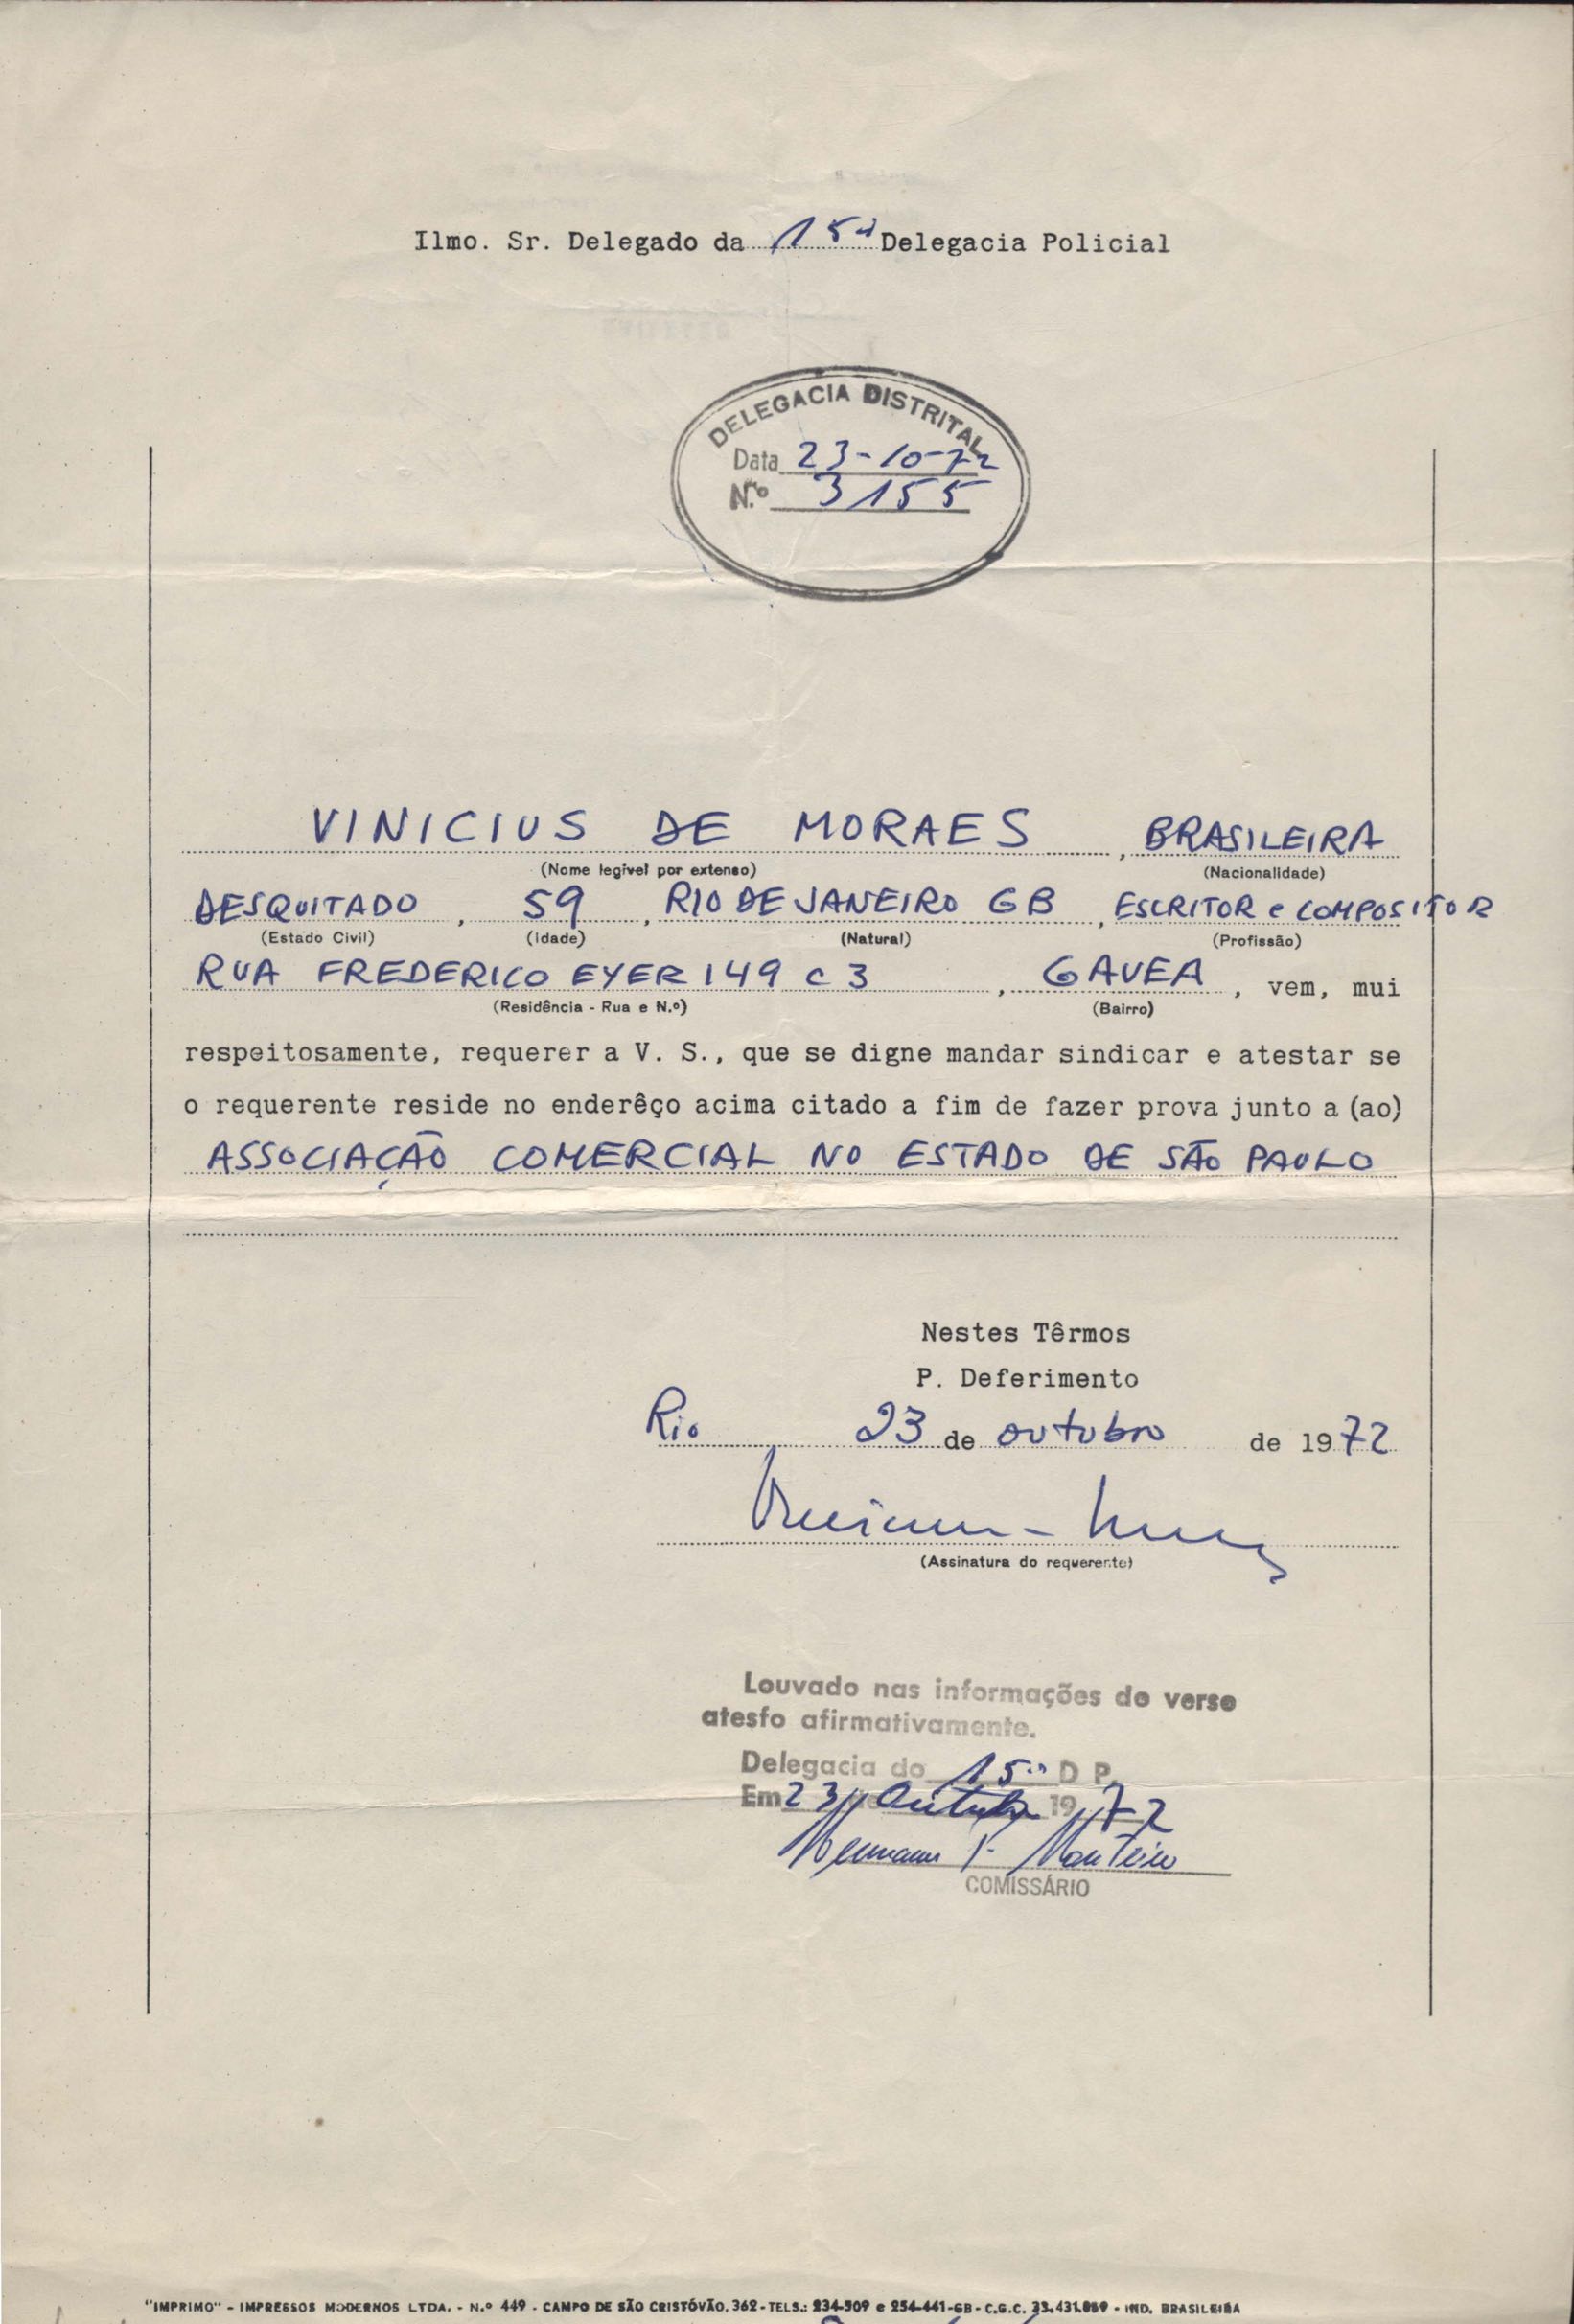 Ilmo. Sr. Delegado da 15ª Delegacia Policial
DELEGACIA DISTRITAL
Data 23-10-72
N.º 3155
VINICIUS DE MORAES, BRASILEIRA
(Nome legivel por extenso) (Nacionalidade)
DESQUITADO, 59, RIO DE JANEIRO GB, ESCRITOR e COMPOSITOR
(Estado Civil) (Idade) (Natural) (Profissão)
RUA FREDERICO EYER 149 C 3, GAVEA, vem, mui
(Residência - Rua e N.º) (Bairro)
respeitosamente, requerer a V. S., que se digne mandar sindicar e atestar se
o requerente reside no enderêço acima citado a fim de fazer prova junto a (ao)
ASSOCIAÇÃO COMERCIAL NO ESTADO DE SÃO PAULO
Nestes Têrmos
P. Deferimento
Rio 23 de outubro de 1972
(Assinatura do requerente)
Louvado nas informações do verso
atesto afirmativamente.
Delegacia do 15ª D P.
Em 23 de Outubro 1972
Monteiro
COMISSÁRIO
"IMPRIMO" - IMPRESSOS MODERNOS LTDA. - N.º 449 - CAMPO DE SÃO CRISTÓVÃO, 362 - TELS.: 234-509 e 254-441-GB - C.G.C. - IND. BRASILEIRA